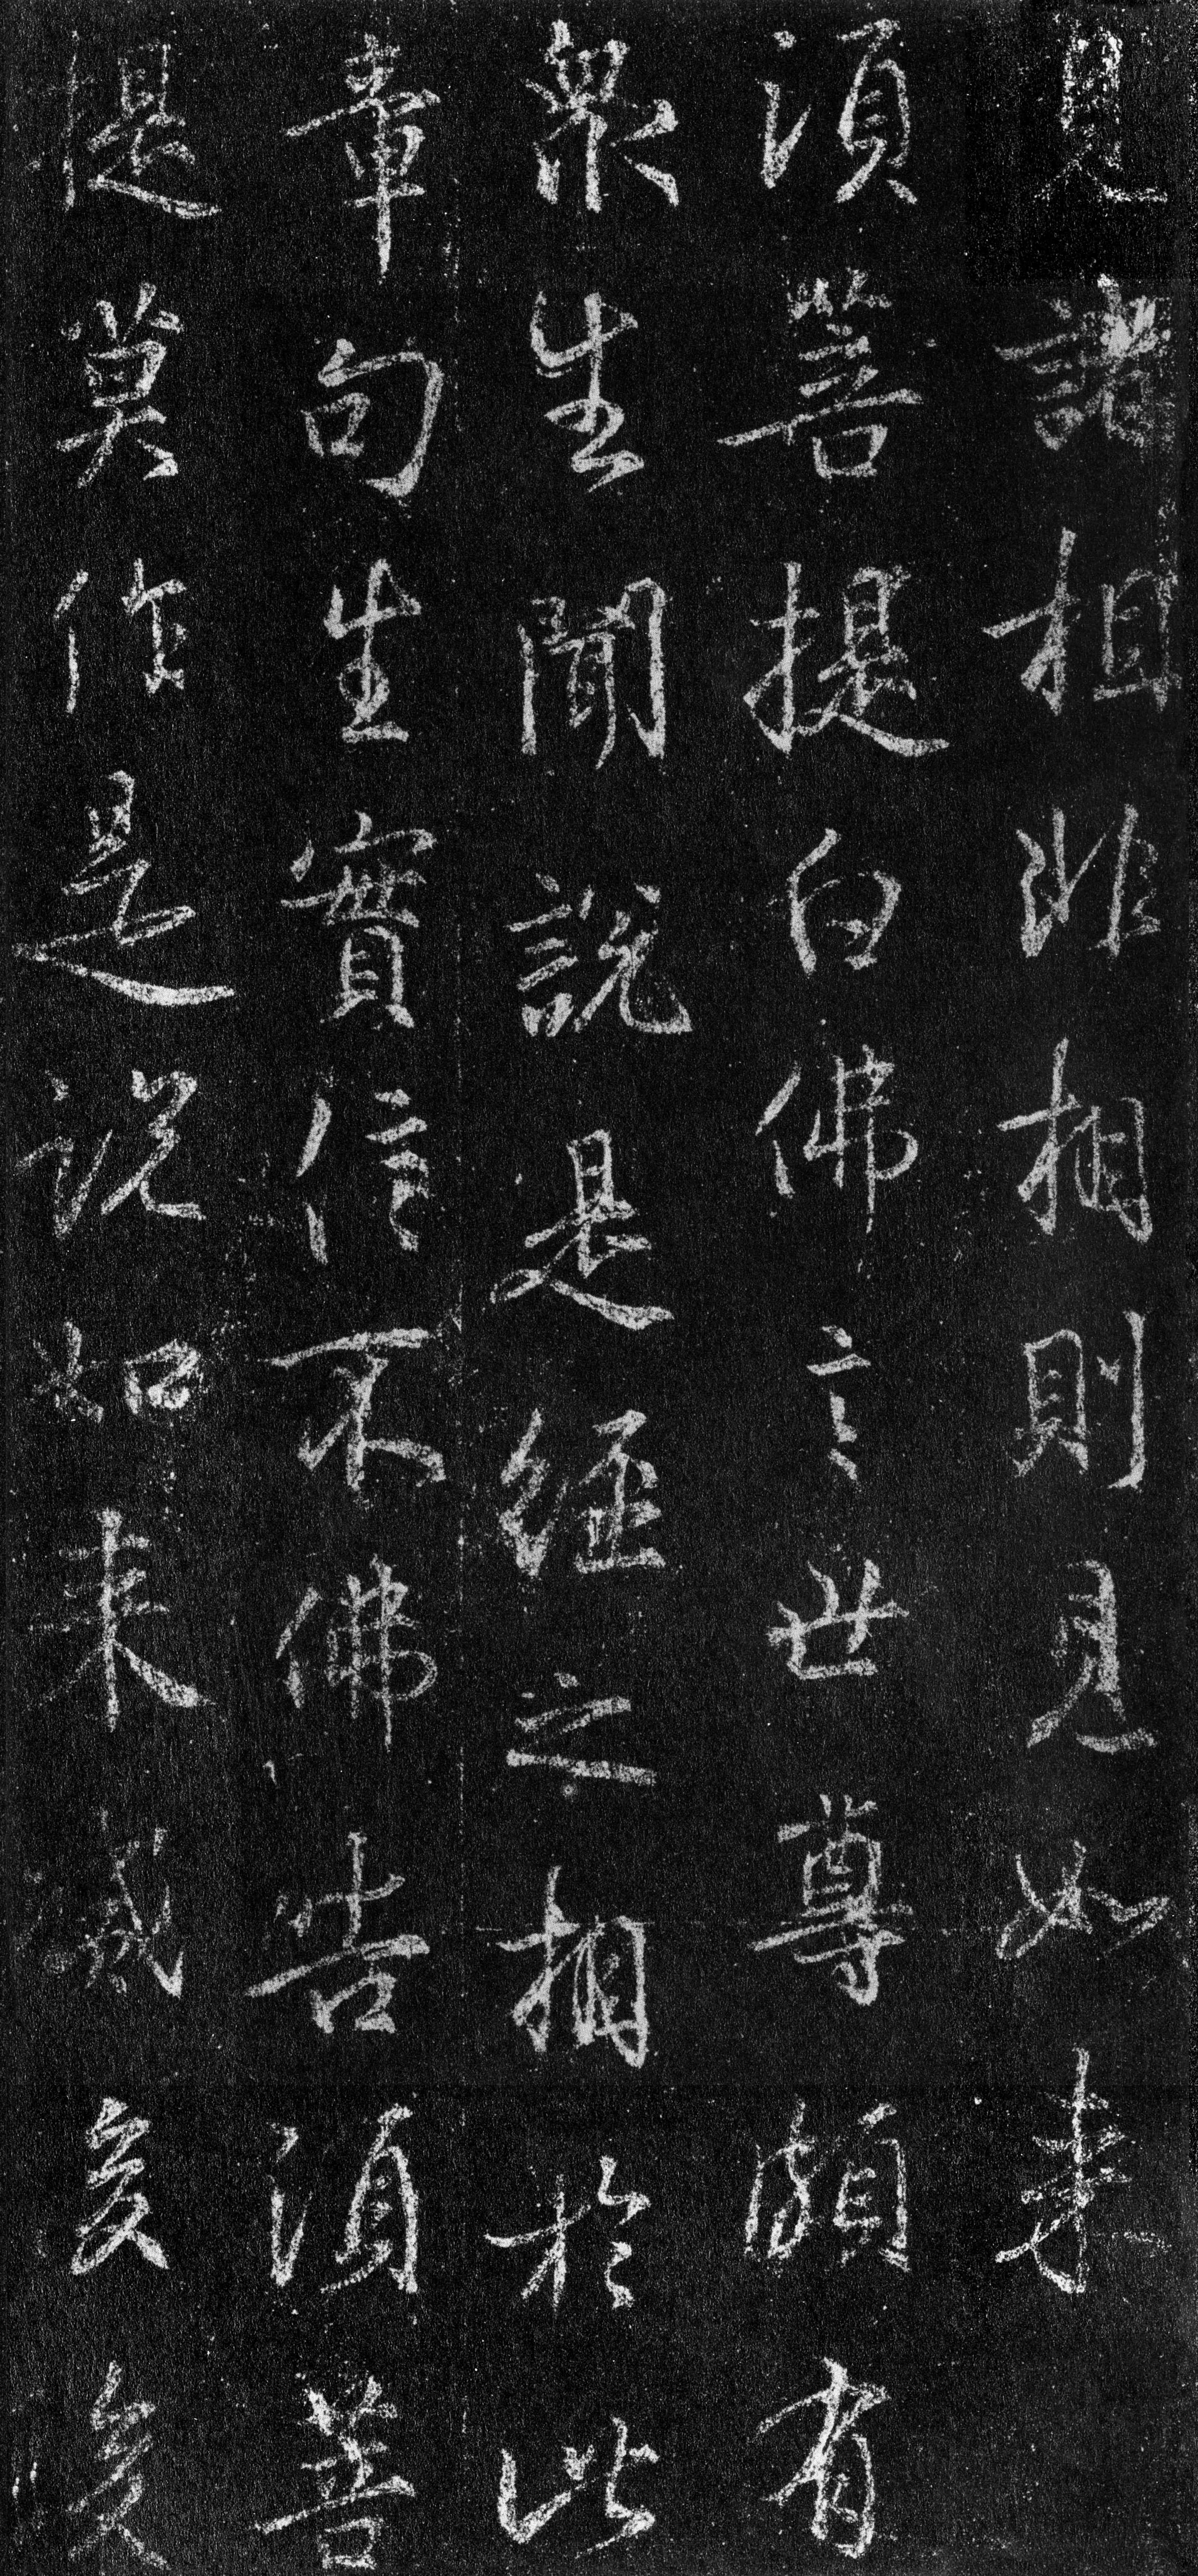 見諸相非相則見如來
須菩提白佛言世尊頗有
衆生聞說是經之相於此
章句生實信不佛告須菩
提莫作是說如來滅後後